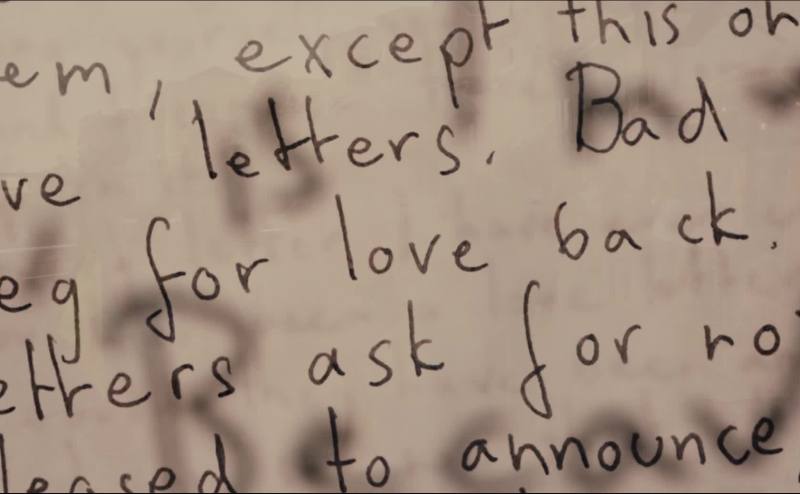 em, except this on
ve letters. Bad
eg for love back.
etters ask for no
leased to announce